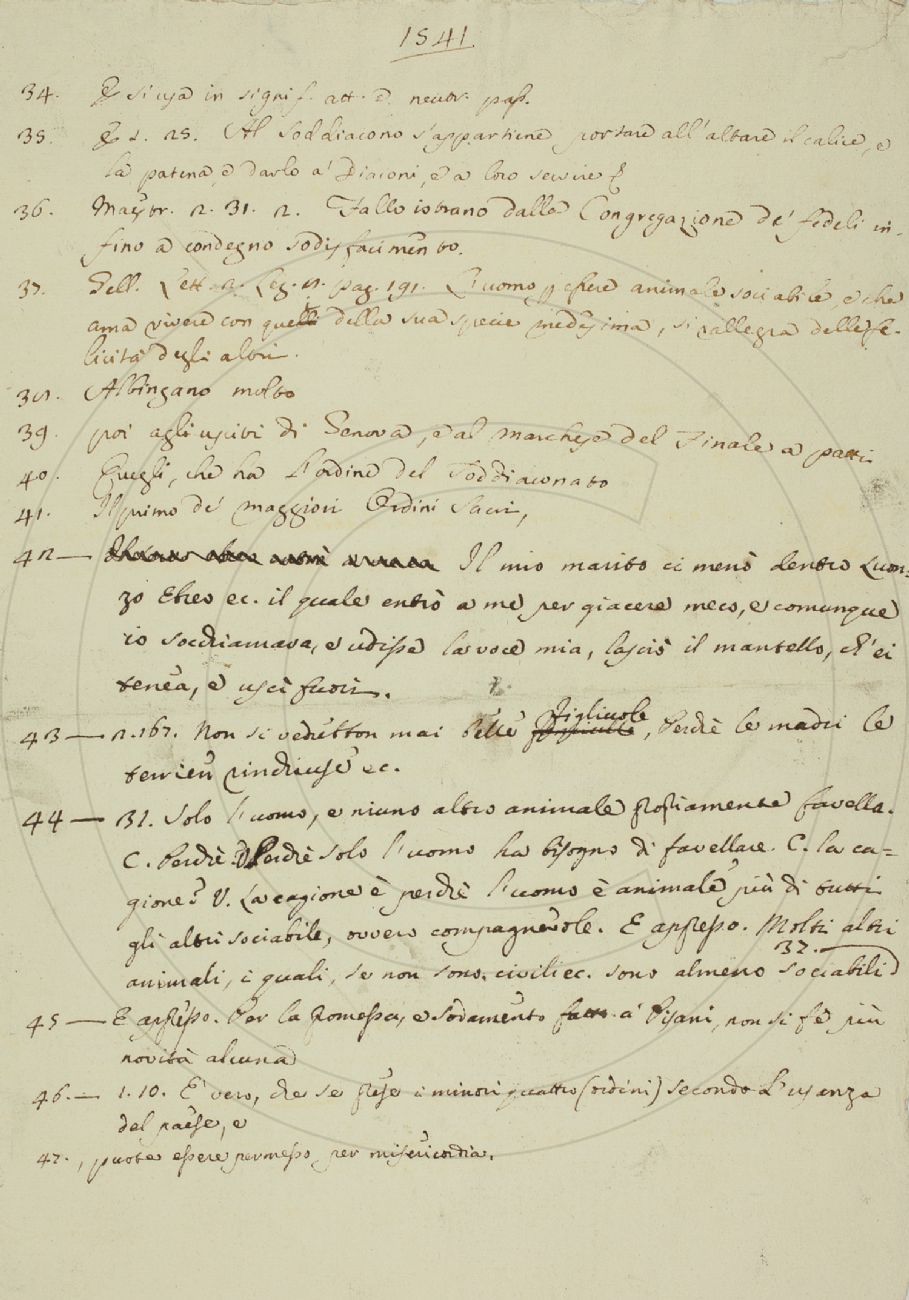 1541
34. E si usa in signif. att. e neutr. pass.
35. E 1. 25. Al Soddiacono s'appartiene portare all'altare il calice, e
la patena, e darlo a' Diaconi, e a loro servire
36. Maestr. 2. 31. 2. Fallo istrano dalla Congregazione de' fedeli in-
fino a condegno sodisfacimento.
37. Gell. Lett. 2. Lez. 8. pag. 191. L'uomo p essere animale sociabile, e che
ama vivere con quelli della sua specie medesima, si rallegra delle fe-
licità degli altri.
38. Albingano molto
39. poi agli usciti di Genova, e al Marchese del Finale a patti
40. Quegli, che ha l'ordine del Soddiaconato
41. Il primo de' maggiori Ordini Sacri,
42 — Il mio marito ci menò dentro Lucon-
zo Ebreo ec. il quale entrò a me per giacere meco, e comunque
io socchiamava, e udisse la voce mia, lasciò il mantello, ch'ei
tenea, e uscì fuori.
43 — 2.167. Non si vedetton mai belle figliuole, Perchè le madri le
tenrieu rindhiuse ec.
44 — 31. Solo l'uomo, e niuno altro animale propiamente favella.
C. Perchè? V. Perchè solo l'uomo ha bisogno di favellare. C. la ca-
gione? V. La cagione è perchè l'uomo è animale più di tutti
gli altri sociabile, ovvero compagnevole. E appresso. Molti altri
37.
animali, i quali, se non sono civili ec. sono almeno sociabili
45 — E appresso. Per la promessa, e sodamento fatto a' Pisani, non si fe' più
novità alcuna
46. — 1. 10. E' vero, che se prese i minori quattro (ordini) secondo l'usanza
del paese, e
47. , puote essere permesso per misericordia.